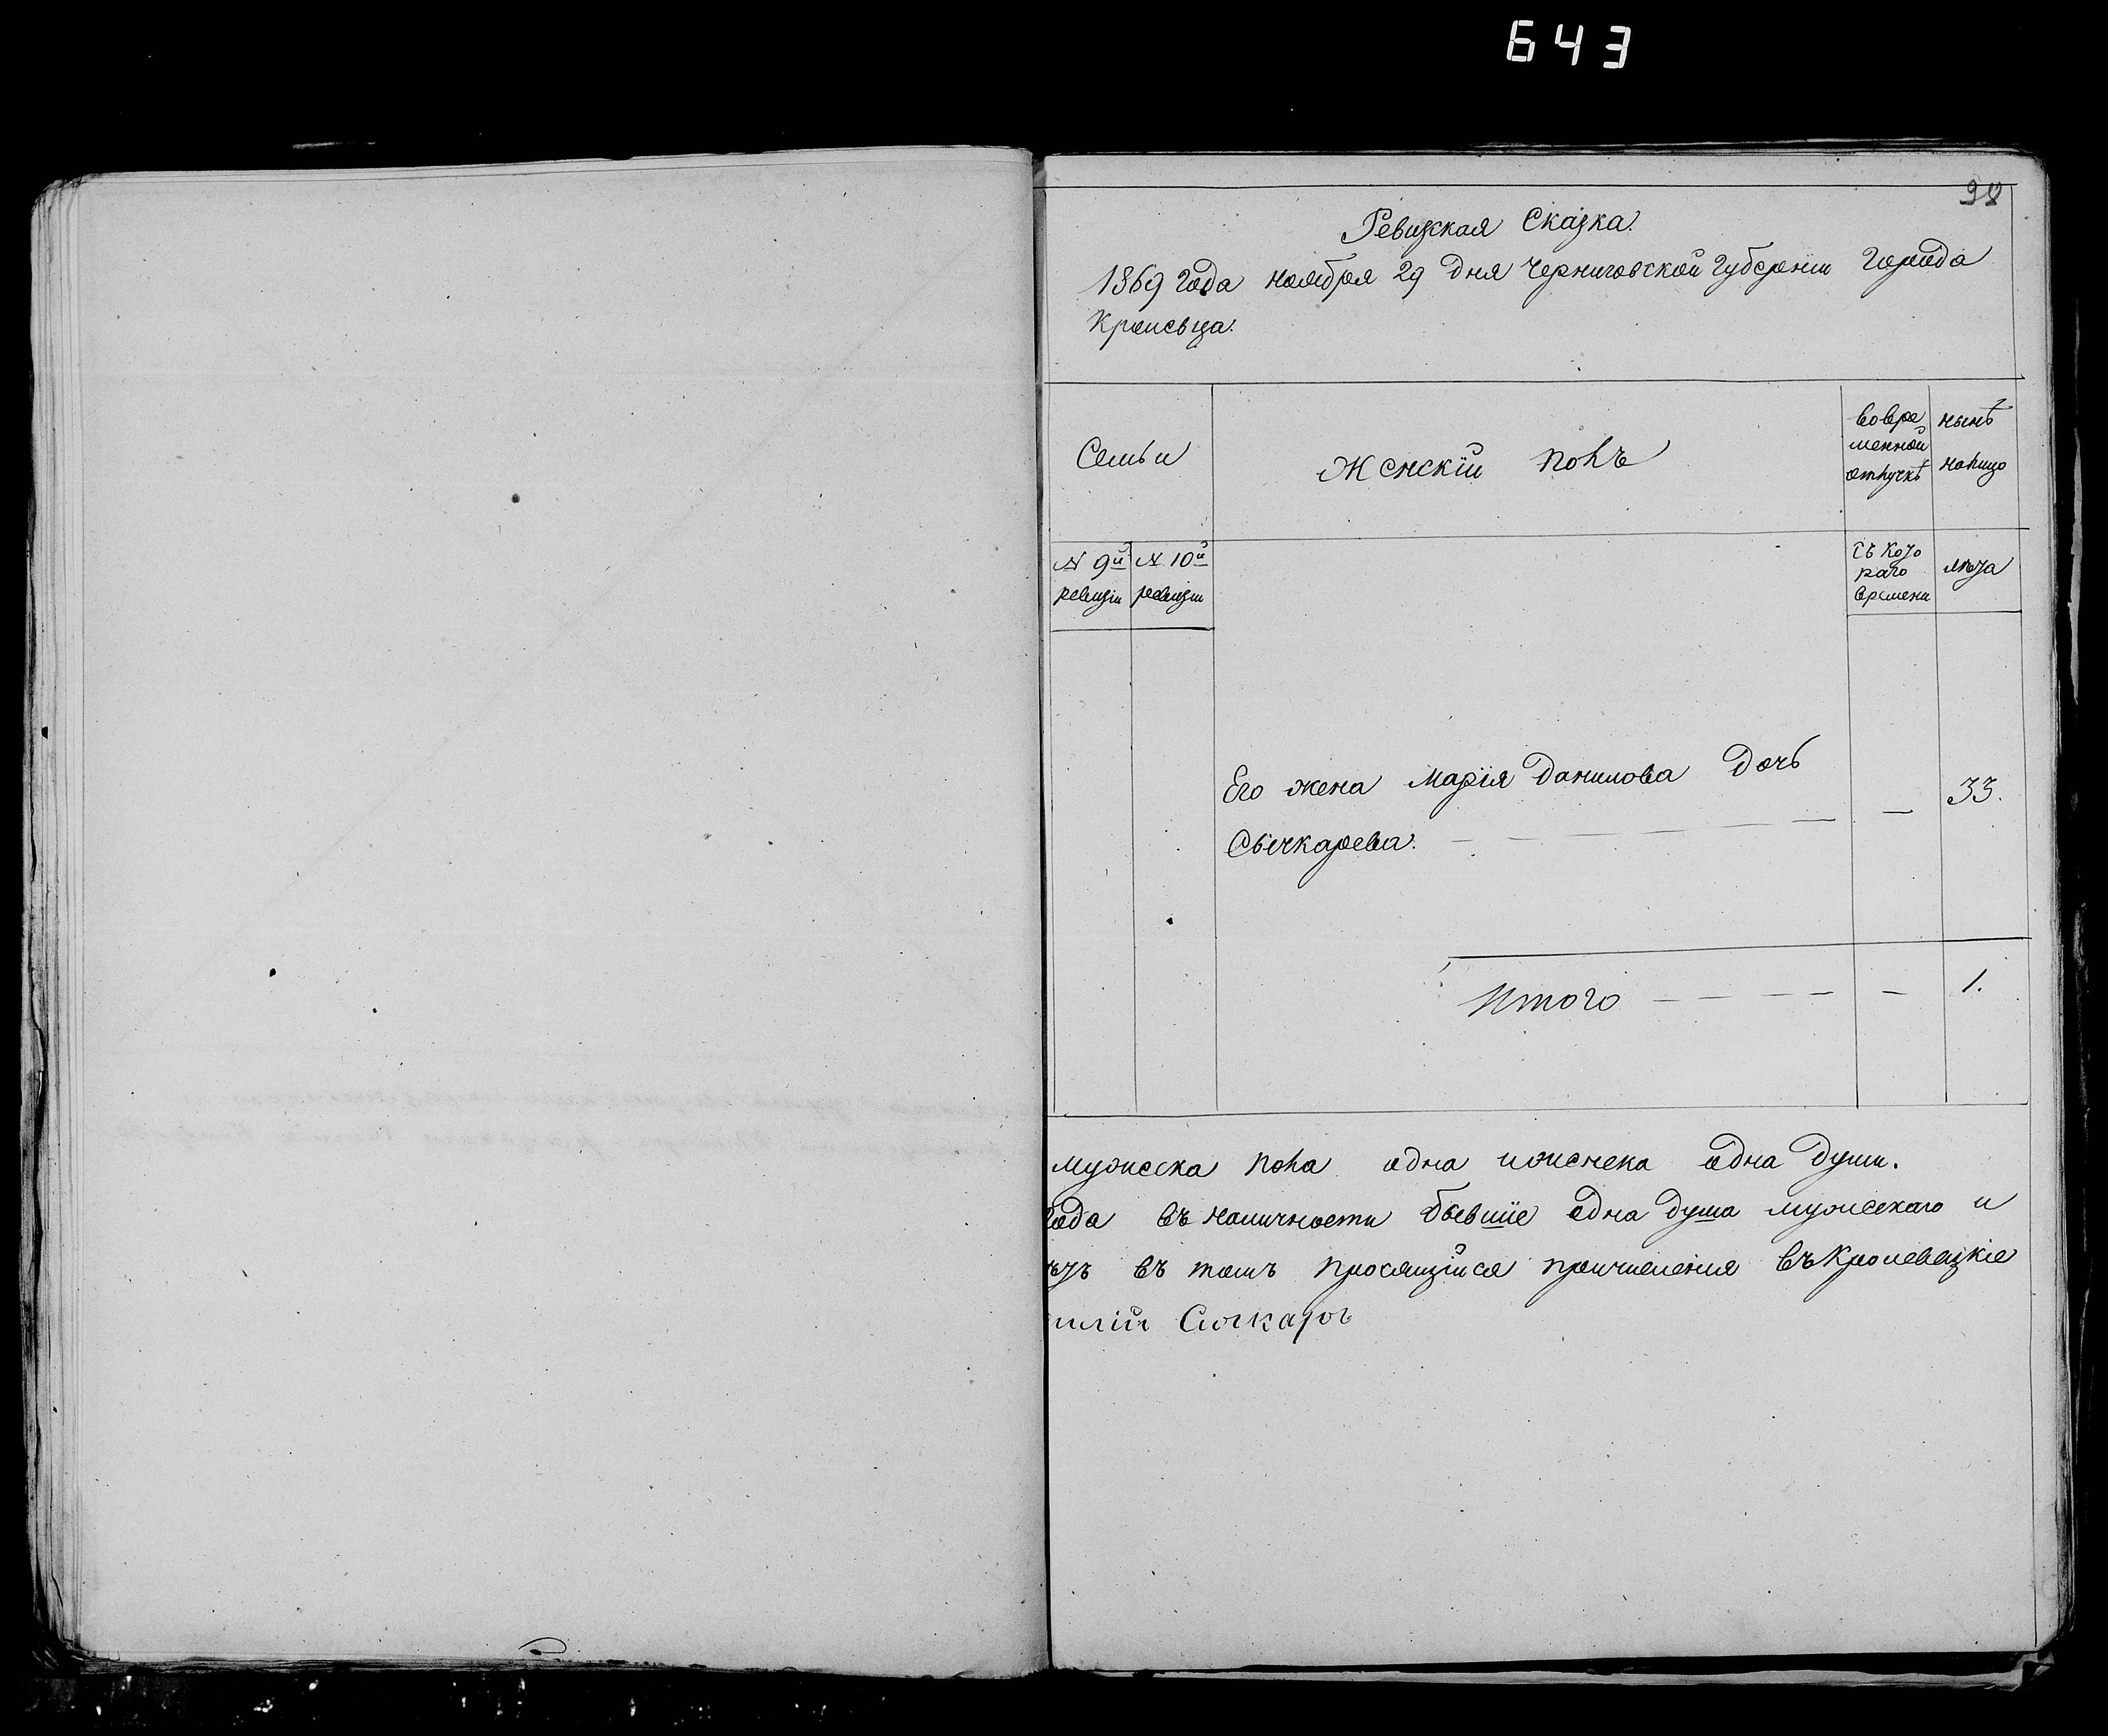 643
98
Ревизская Сказка.
1869 года ноября 29 дня Черниговской Губернии Города
Кролевца.
Семьи
Женскій полъ
Во вре
менной
отлучкѣ
нынѣ
налицо
N 9й
ревизіи
N 10й
ревизіи
Съ кото
раго
времени
лѣта
Его жена Марія Данилова Дочь
Сычкарева. — 33.
Итого — 1.
мужеска пола одна и женска одна души.
года въ наличности бывшіе одна душа мужескаго и
въ томъ просящійся причисленія въ Кролевецкіе
Сычкаръ